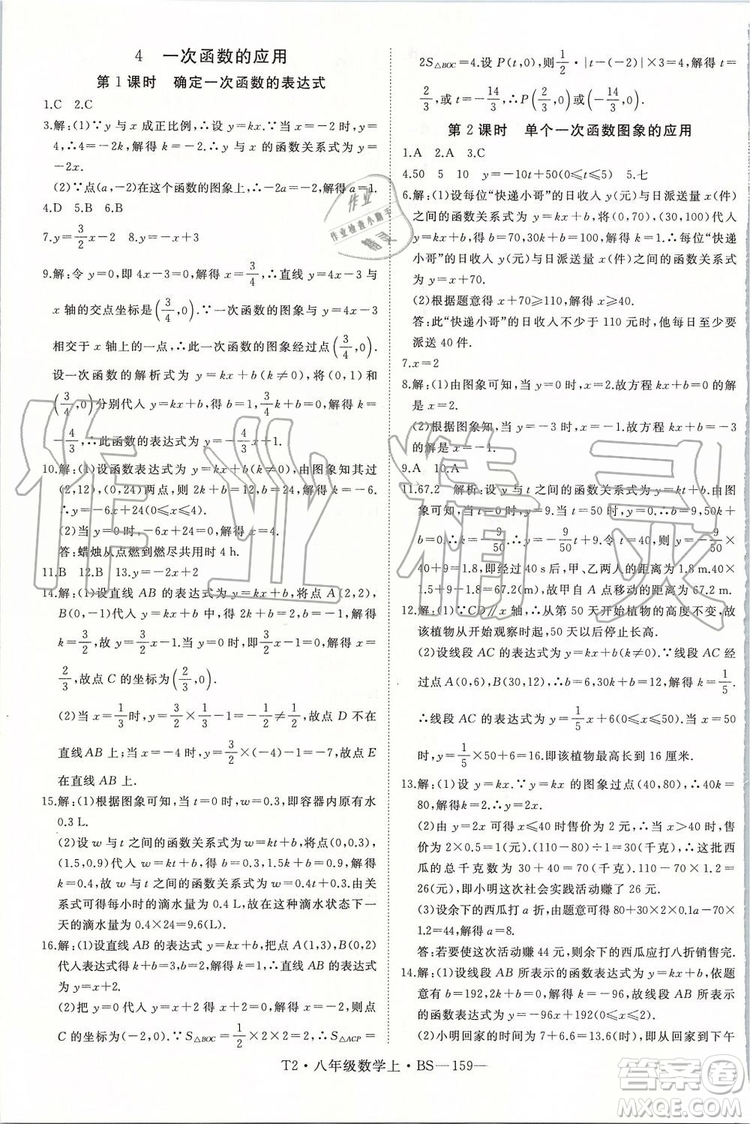 4　一次函数的应用
第1课时　确定一次函数的表达式
1.C　2.C
3.解:(1)∵y 与 x 成正比例,∴设 y=kx,∵当 x=-2 时,y=
4,∴4=-2k,解得 k=-2.∴y 与 x 的函数关系式为 y=
-2x.
(2)∵点(a,-2)在这个函数的图象上,∴-2a=-2,解得 a=1.
4.D　5.B　6.B
7.y=3/2x-2　8.y=-x+3
9.解:令 y=0,即 4x-3=0,解得 x=3/4,∴直线 y=4x-3 与
x 轴的交点坐标是(3/4,0).∵一次函数的图象与 y=4x-3
相交于 x 轴上的一点,∴一次函数的图象经过点(3/4,0).
设一次函数的解析式为 y=kx+b(k≠0),把点(0,1),
(3/4,0)分别代入 y=kx+b,得 b=1,3/4k+b=0,解得 k=
-4/3,∴此函数的表达式为 y=-4/3x+1.
10.解:(1)设函数表达式为 y=kx+b,由图象知其过
(2,12),(0,24)两点,则 b=24,2k+b=12,解得 k=-6.
∴y=-6x+24(0≤x≤4).
(2)当 y=0 时,-6x+24=0,解得 x=4.
答:蜡烛从点燃到燃尽共用时 4 h.
11.B　12.B　13.y=-x+2
14.解:(1)设直线 AB 的表达式为 y=kx+b,将点 A(2,2),
B(0,-1)代入 y=kx+b 中,得 b=-1,2k+b=2,解得
k=3/2,故表达式为 y=3/2x-1.当 y=0 时,3/2x-1=0,x=
2/3,故点 C 的坐标为(2/3,0).
(2)当 x=-1 时,y=3/2×(-1)-1=-5/2,故点 D 不在
直线 AB 上;当 x=-2 时,y=3/2×(-2)-1=-4,故点 E
在直线 AB 上.
15.解:(1)根据图象可知,当 t=0 时,w=0.3,即容器内原有水
0.3 L.
(2)设 w 与 t 之间的函数关系式为 w=kt+b,将点(0,0.3),
(1.5,0.9)代入 w=kt+b,得 b=0.3,1.5k+b=0.9,解得
k=0.4.故 w 与 t 之间的函数关系式为 w=0.4t+0.3.由
解析式可得每小时滴水量为 0.4 L,故在这种滴水状态下一
天的滴水量为 0.4×24=9.6(L).
16.解:(1)设直线 AB 的表达式为 y=kx+b,把点 A(1,3),B(0,2)
代入表达式得 k+b=3,b=2,解得 k=1,∴直线 AB 的表达式为
y=x+2.
(2)把 y=0 代入 y=x+2 得 x+2=0,解得 x=-2,则点
C 的坐标为(-2,0).∵S△BOC=1/2×2×2=2,∴S△ACP=
2S△BOC=4.设 P(t,0),则可得 1/2·|t-(-2)|×3=4,解得 t=
2/3,或 t=-14/3,故点 P 的坐标为(2/3,0)或(-14/3,0).
第2课时　单个一次函数图象的应用
1.A　2.A　3.C
4.50　5　10　y=-10t+50(0≤t≤5)　5.七
6.解:(1)设每位“快递小哥”的日收入 y(元)与日派送量 x(件)
之间的函数关系式为 y=kx+b,将(0,70),(30,100)代入
y=kx+b,得 b=70,30k+b=100,解得 k=1,∴每位“快递
小哥”的日收入 y(元)与日派送量 x(件)之间的函数关系式
为 y=x+70.
(2)根据题意得 x+70≥110,解得 x≥40.
答:此“快递小哥”的日收入不少于 110 元,则他至少要派
送 40 件.
7.x=2
8.解:(1)由图象可知,当 y=0 时,x=2,故方程 kx+b=0 的
解是 x=2.
(2)根据图象知,当 y=-3 时,x=-1,故方程 kx+b=-3
的解是 x=-1.
9.A　10.A
11.67.2　解析:设 y 与 t 之间的函数关系式为 y=kt,由图
象可知,当 t=50 时,y=-9,∴-9=50k,解得 k=
-9/50,∴y=-9/50t(0≤t≤50).令 t=40,则 y=-9/50×
40=-7.2,即经过 40 s 后,甲、乙两人的距离为 1.8 m.40×
1.5+9-1.8=67.2(m),故甲自 A 点移动的距离为 67.2 m.
12.解:(1)∵CD∥x 轴,∴从第 50 天开始植物的高度不变,故
该植物从开始观察时起,50 天以后停止长高.
(2)设线段 AC 的表达式为 y=kx+b(k≠0).∵线段 AC 经
过点 A(0,6),B(30,12),∴b=6,30k+b=12,解得 k=1/5.
∴线段 AC 的表达式为 y=1/5x+6(0≤x≤50),当 x=50
时,y=1/5×50+6=16,即该植物最高长到 16 厘米.
13.解:(1)设 y=kx,∵y=kx 的图象过点(40,80),∴40k=80,
解得 k=2,∴y=2x(0≤x≤40).
(2)由图象可知前 40 千克的单价为 2 元.∴当 x>40 时售价为
2×0.5=1(元),∴其余西瓜的重量为 116-80=36(千克),故西
瓜的总千克数为 36+40=76(千克),116-76×1.2=24.8≈
26(元),即小明这次社会实践活动赚了 26 元.
(3)设余下的西瓜打 a 折售完,由题意得 80+36×0.1a×2-
76×1.2=44,解得 a=8.
答:若希望这次活动赚 44 元,则余下的西瓜应打八折销售完.
14.解:(1)设线段 AB 所表示的函数关系式为 y=kx+b,依题意
得 b=192,2k+b=0,解得 k=-96,故线段 AB 所表示
的函数关系式为 y=-96x+192(0≤x≤2).
(2)小明回家的时间为 7+6.6=13.6(时),从家里回到家由下午
T2·八年级数学上·BS—159—
作业精灵
作业检查小助手
精灵
答案圈
MXQE.COM